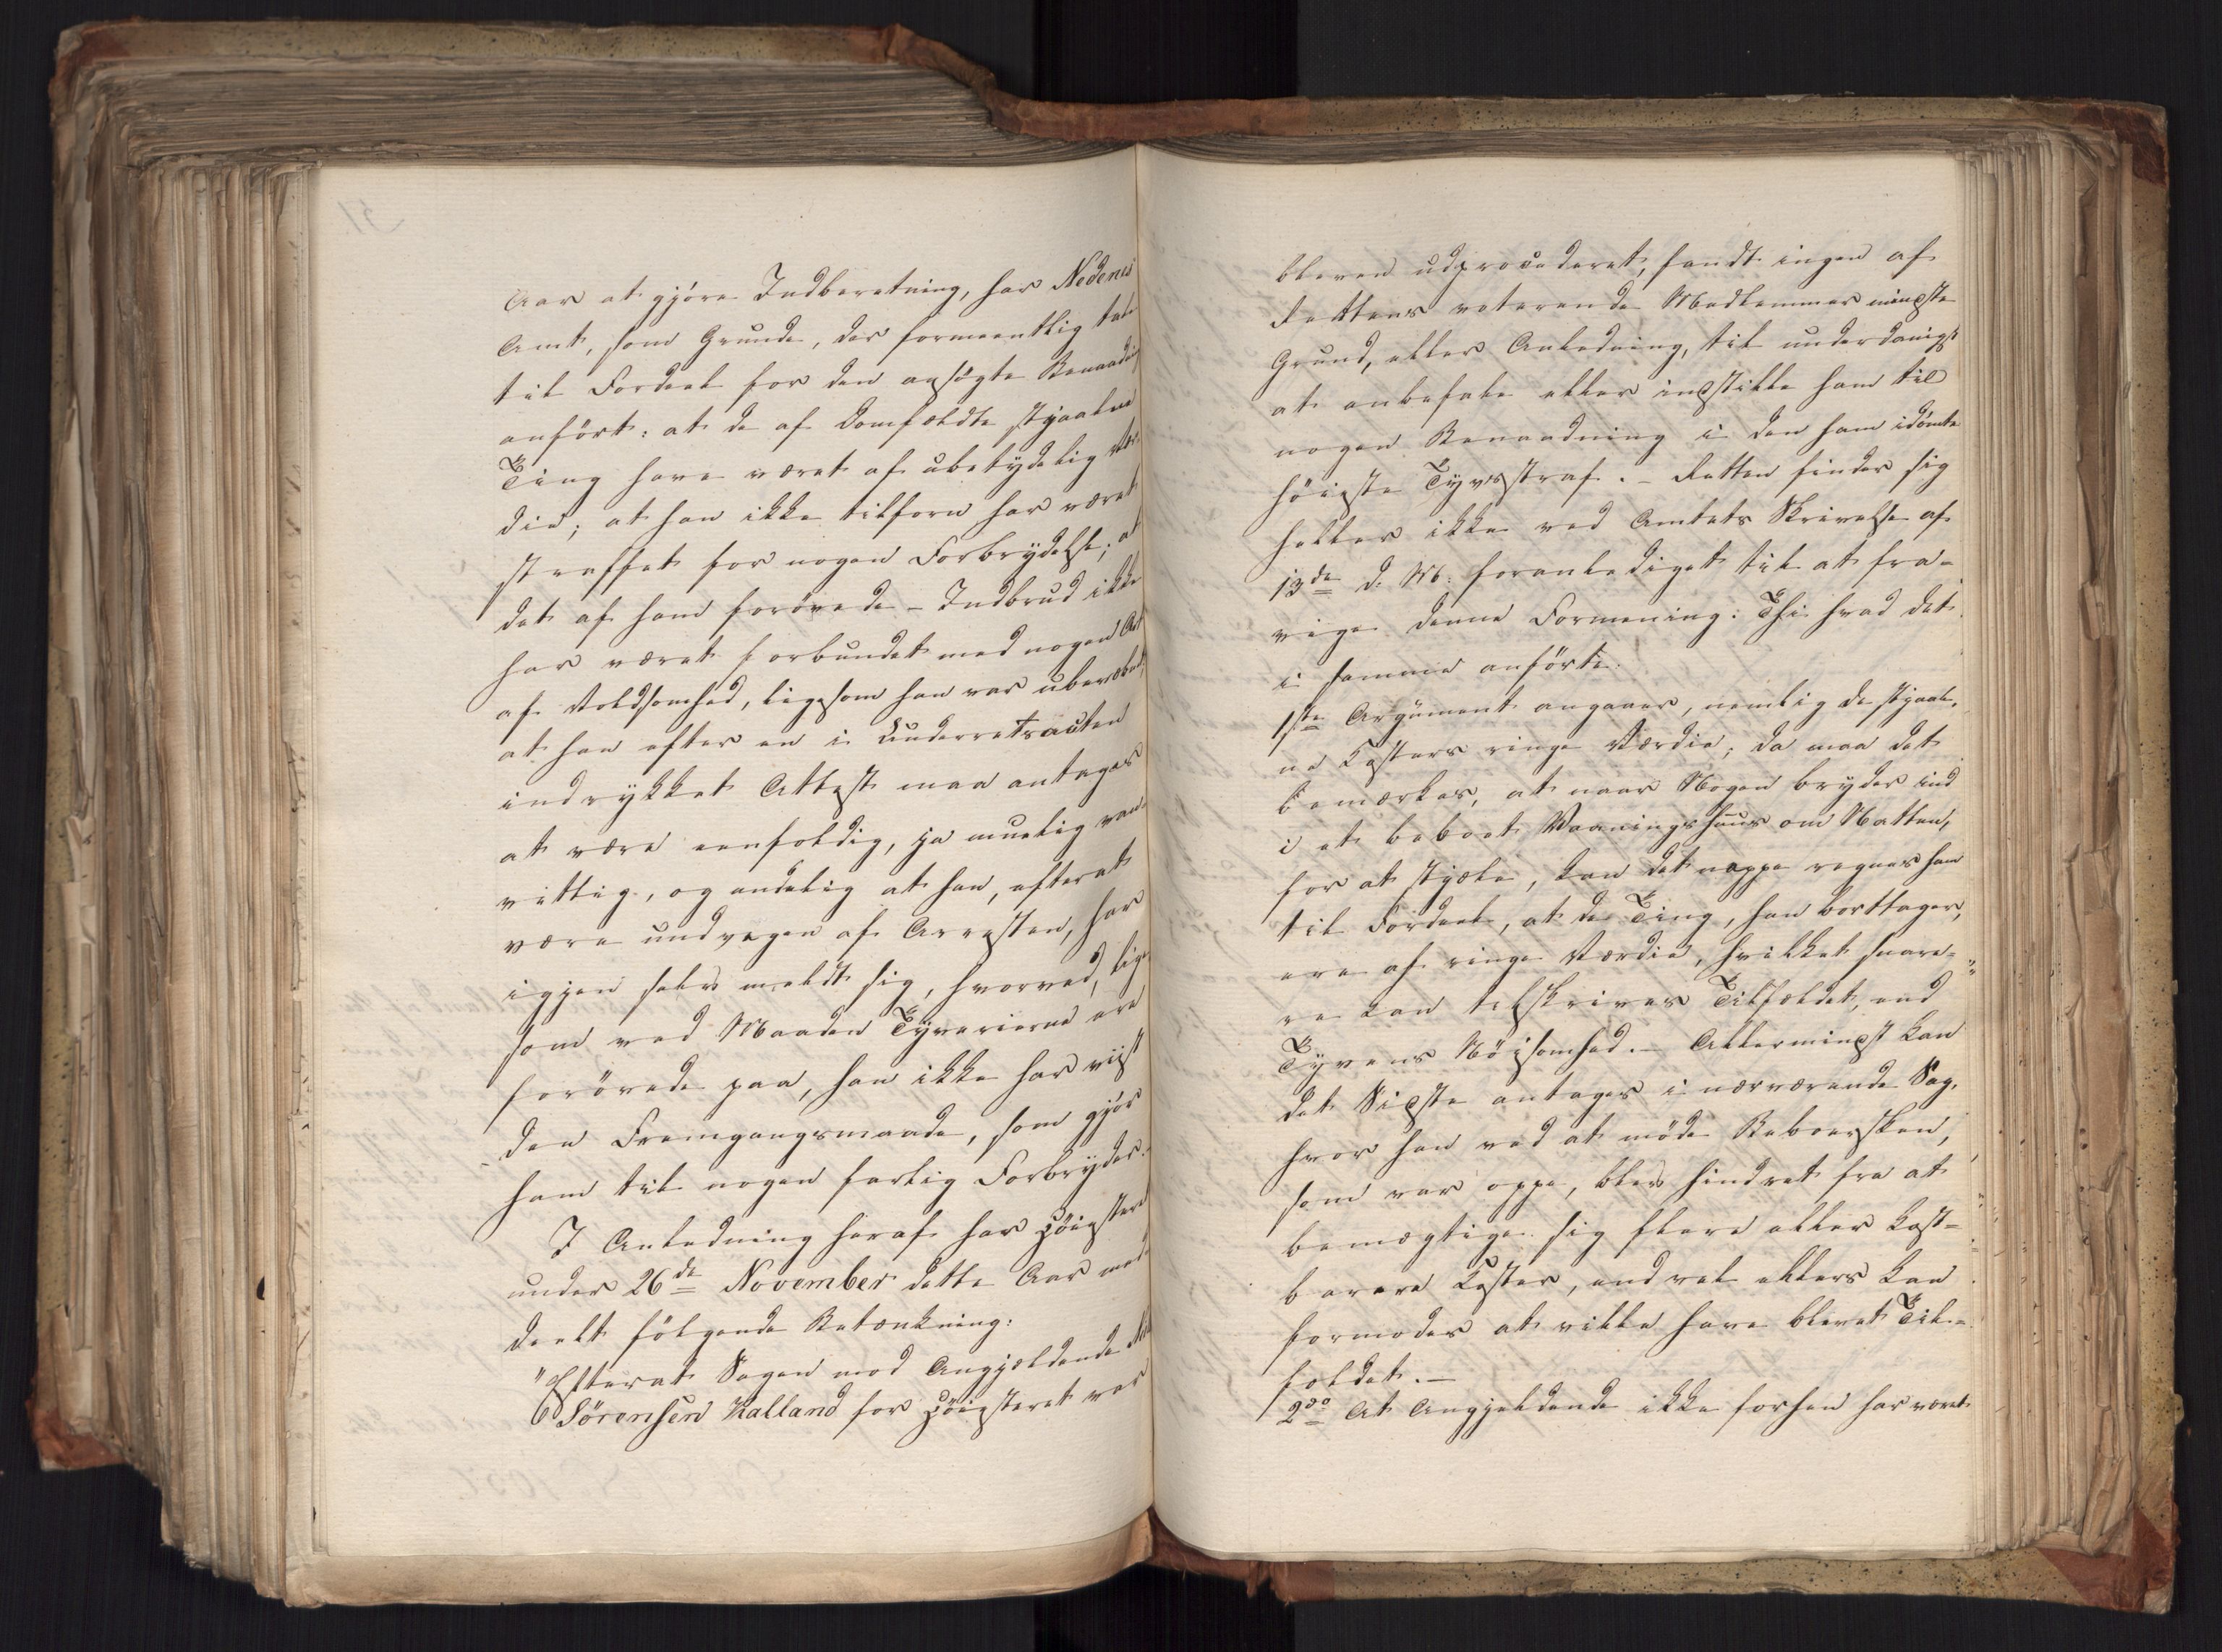 Aar at gjöre Indberetning, har Nedenes
Amt, som Grunde, der formeentlig tale
til Fordeel for den ansögte Benaadning
anfört: at de af Domfældte stjaalne
Ting have været af ubetydelig Vær-
die; at han ikke tilforn har været
straffet for nogen Forbrydelse; at
det af ham forövede Indbrud ikke
har været forbundet med nogen Art
af Voldsomhed, ligesom han var ubevæbnet;
at han efter en i Underretsacten
indrykket Attest maa antages
at være eenfoldig, ja muelig van-
vittig, og endelig at han, efterat
være undvegen af Arresten, har
igjen selv meldt sig, hvorved, lige-
som ved Maaden Tyverierne ere
forövede paa, han ikke har viist
den Fremgangsmaade, som gjör
ham til nogen farlig Forbryder.
I Anledning heraf har Höiesteret
under 26de November dette Aar med-
deelt fölgende Betænkning:
"Efterat Sagen mod Angjeldende
Sörensen Kalland for Höiesteret var
bleven udprocederet, fandt ingen af
Rettens voterende Medlemmer mindste
Grund, eller Anledning, til underdanigst
at anbefale eller indstille ham til
nogen Benaadning i den ham idömte
höieste Tyvsstraf. – Retten finder sig
heller ikke ved Amtets Skrivelse af
13de d: M: foranlediget til at fra-
vige denne Formening: Thi hvad det
i samme anförte
1ste Argument angaaer, nemlig de stjaal-
ne Kosters ringe Værdie; da maa det
bemærkes, at naar Nogen bryder ind
i et beboet Vaaningshuus om Natten,
for at stjæle, kan det neppe regnes ham
til Fordeel, at de Ting, han borttager,
ere af ringe Værdie, hvilket snare-
re kan tilskrives Tilfældet, end
Tyvens Nöisomhed. – Allermindst kan
det Sidste antages i nærværende Sag,
hvor han ved at möde Beboersken,
som var oppe, blev hindret fra at
bemægtige sig flere eller kost-
barere Koster, end vel ellers kan
formodes at ville have blevet Til-
fældet. –
2do At Angjeldende ikke forhen har været